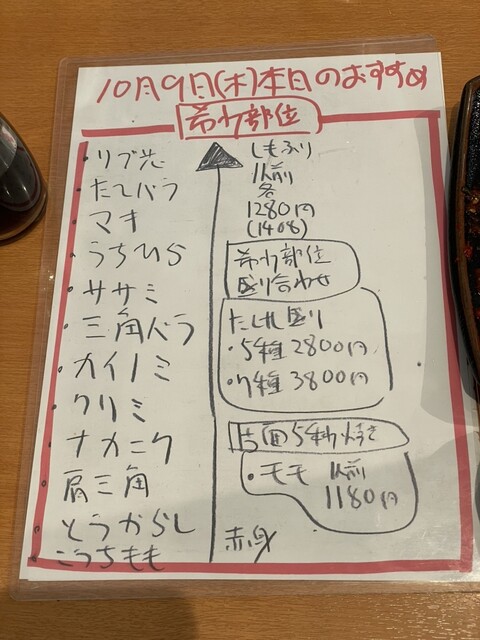 10月9日(木)本日のおすすめ
希少部位
・リブ芯
・たてバラ
・マキ
・うちひら
・ササミ
・三角バラ
・カイノミ
・クリミ
・ナカニク
・肩三角
・とうがらし
・こうちもも
しもふり
1人前
各
1280円
(1408)
希少部位
盛り合わせ
・5種 2800円
・7種 3800円
片面5秒焼き
・モモ 1人前
1180円
赤身